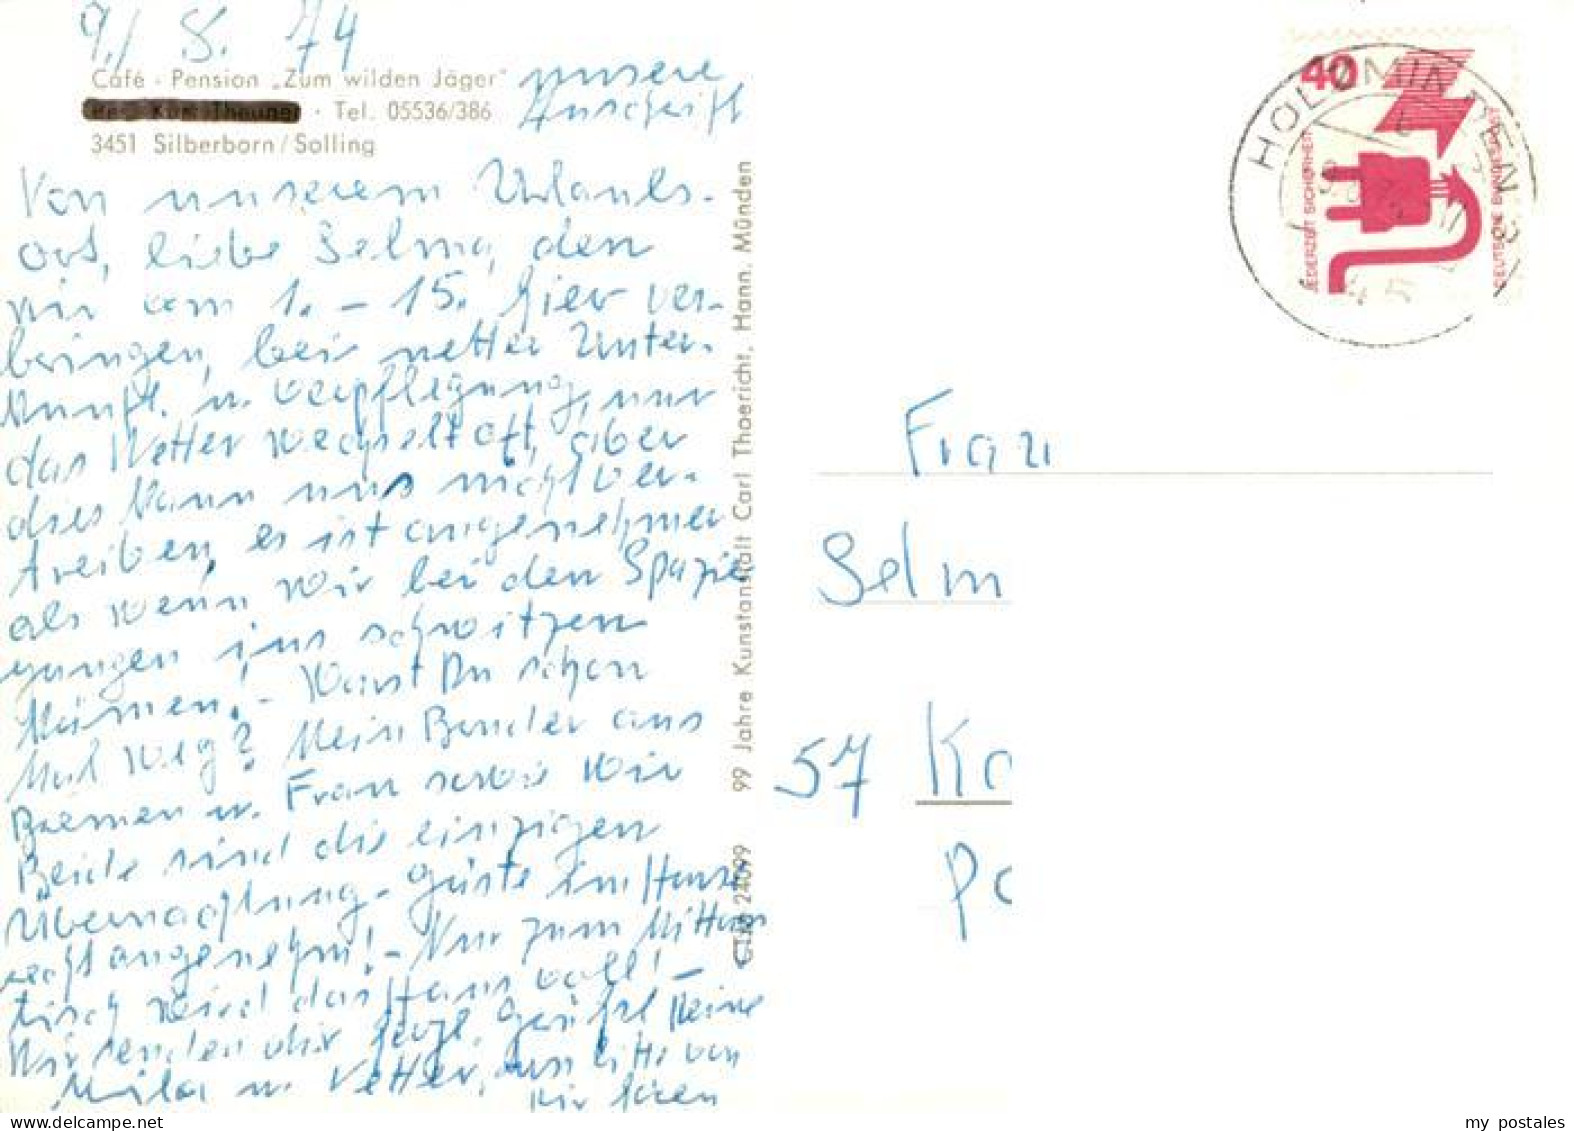 9./8. 74
Café - Pension „Zum wilden Jäger" unsere
Tel. 05536/386 Anschrift
3451 Silberborn/Solling
Von unserem Urlaubs-
ort, liebe Selma, den
wir am 1. - 15. hier ver-
bringen, bei netter Unter-
kunft. u. Verpflegung, nur
das Wetter wechselt oft, aber
dies kann uns nicht ver-
treiben, es ist angenehmer
als wenn wir bei den Spazie
gungen ins schwitzen
kommen. - Warst Du schon
Mal weg? Mein Bruder aus
Bremen u. Frau sowie wir
Beide sind die einzigen
Übernachtung-Gäste im Hause
recht angenehm! - Nur zum Mittags
tisch wird das Haus voll! -
Wir senden dir herzl. Grüße
u. Vetter, von
99 Jahre Kunstanstalt Carl Thoericht, Hann. Münden
CTM 24099
40
JEDERZEIT SICHERHEIT
DEUTSCHE BUNDESPOST
HOLZMINDEN
Frau
Selm
57 Ko
my postales